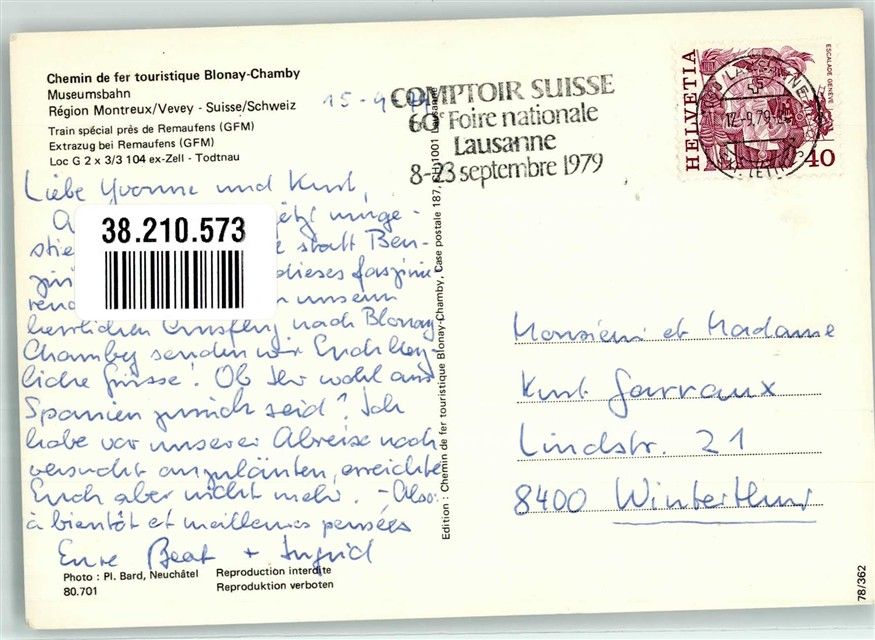 Chemin de fer touristique Blonay-Chamby
Museumsbahn
Région Montreux/Vevey - Suisse/Schweiz
Train spécial près de Remaufens (GFM)
Extrazug bei Remaufens (GFM)
Loc G 2 x 3/3 104 ex-Zell - Todtnau
15-9-79
Liebe Yvonne und Kurt,
jetzt umge-
stie statt Ben-
dieses faszinie-
rend unserm
herrlichen Ausflug nach Blonay-
Chamby senden wir Euch herz-
liche Grüsse! Ob Ihr wohl aus
Spanien zurück seid? Ich
habe vor unserer Abreise noch
versucht anzuläuten, erreichte
Euch aber nicht mehr. - Also:
à bientôt et meilleures pensées
Eure Beat + Ingrid
38.210.573
Photo : Pl. Bard, Neuchâtel
80.701
Reproduction interdite
Reproduktion verboten
Edition : Chemin de fer touristique Blonay-Chamby, Case postale 187, 1001 Lausanne
COMPTOIR SUISSE
60e Foire nationale
Lausanne
8-23 septembre 1979
HELVETIA
ESCALADE GENÈVE
40
LAUSANNE
12.-9.79
Monsieur et Madame
Kurt Garraux
Lindstr. 21
8400 Winterthur
78/362